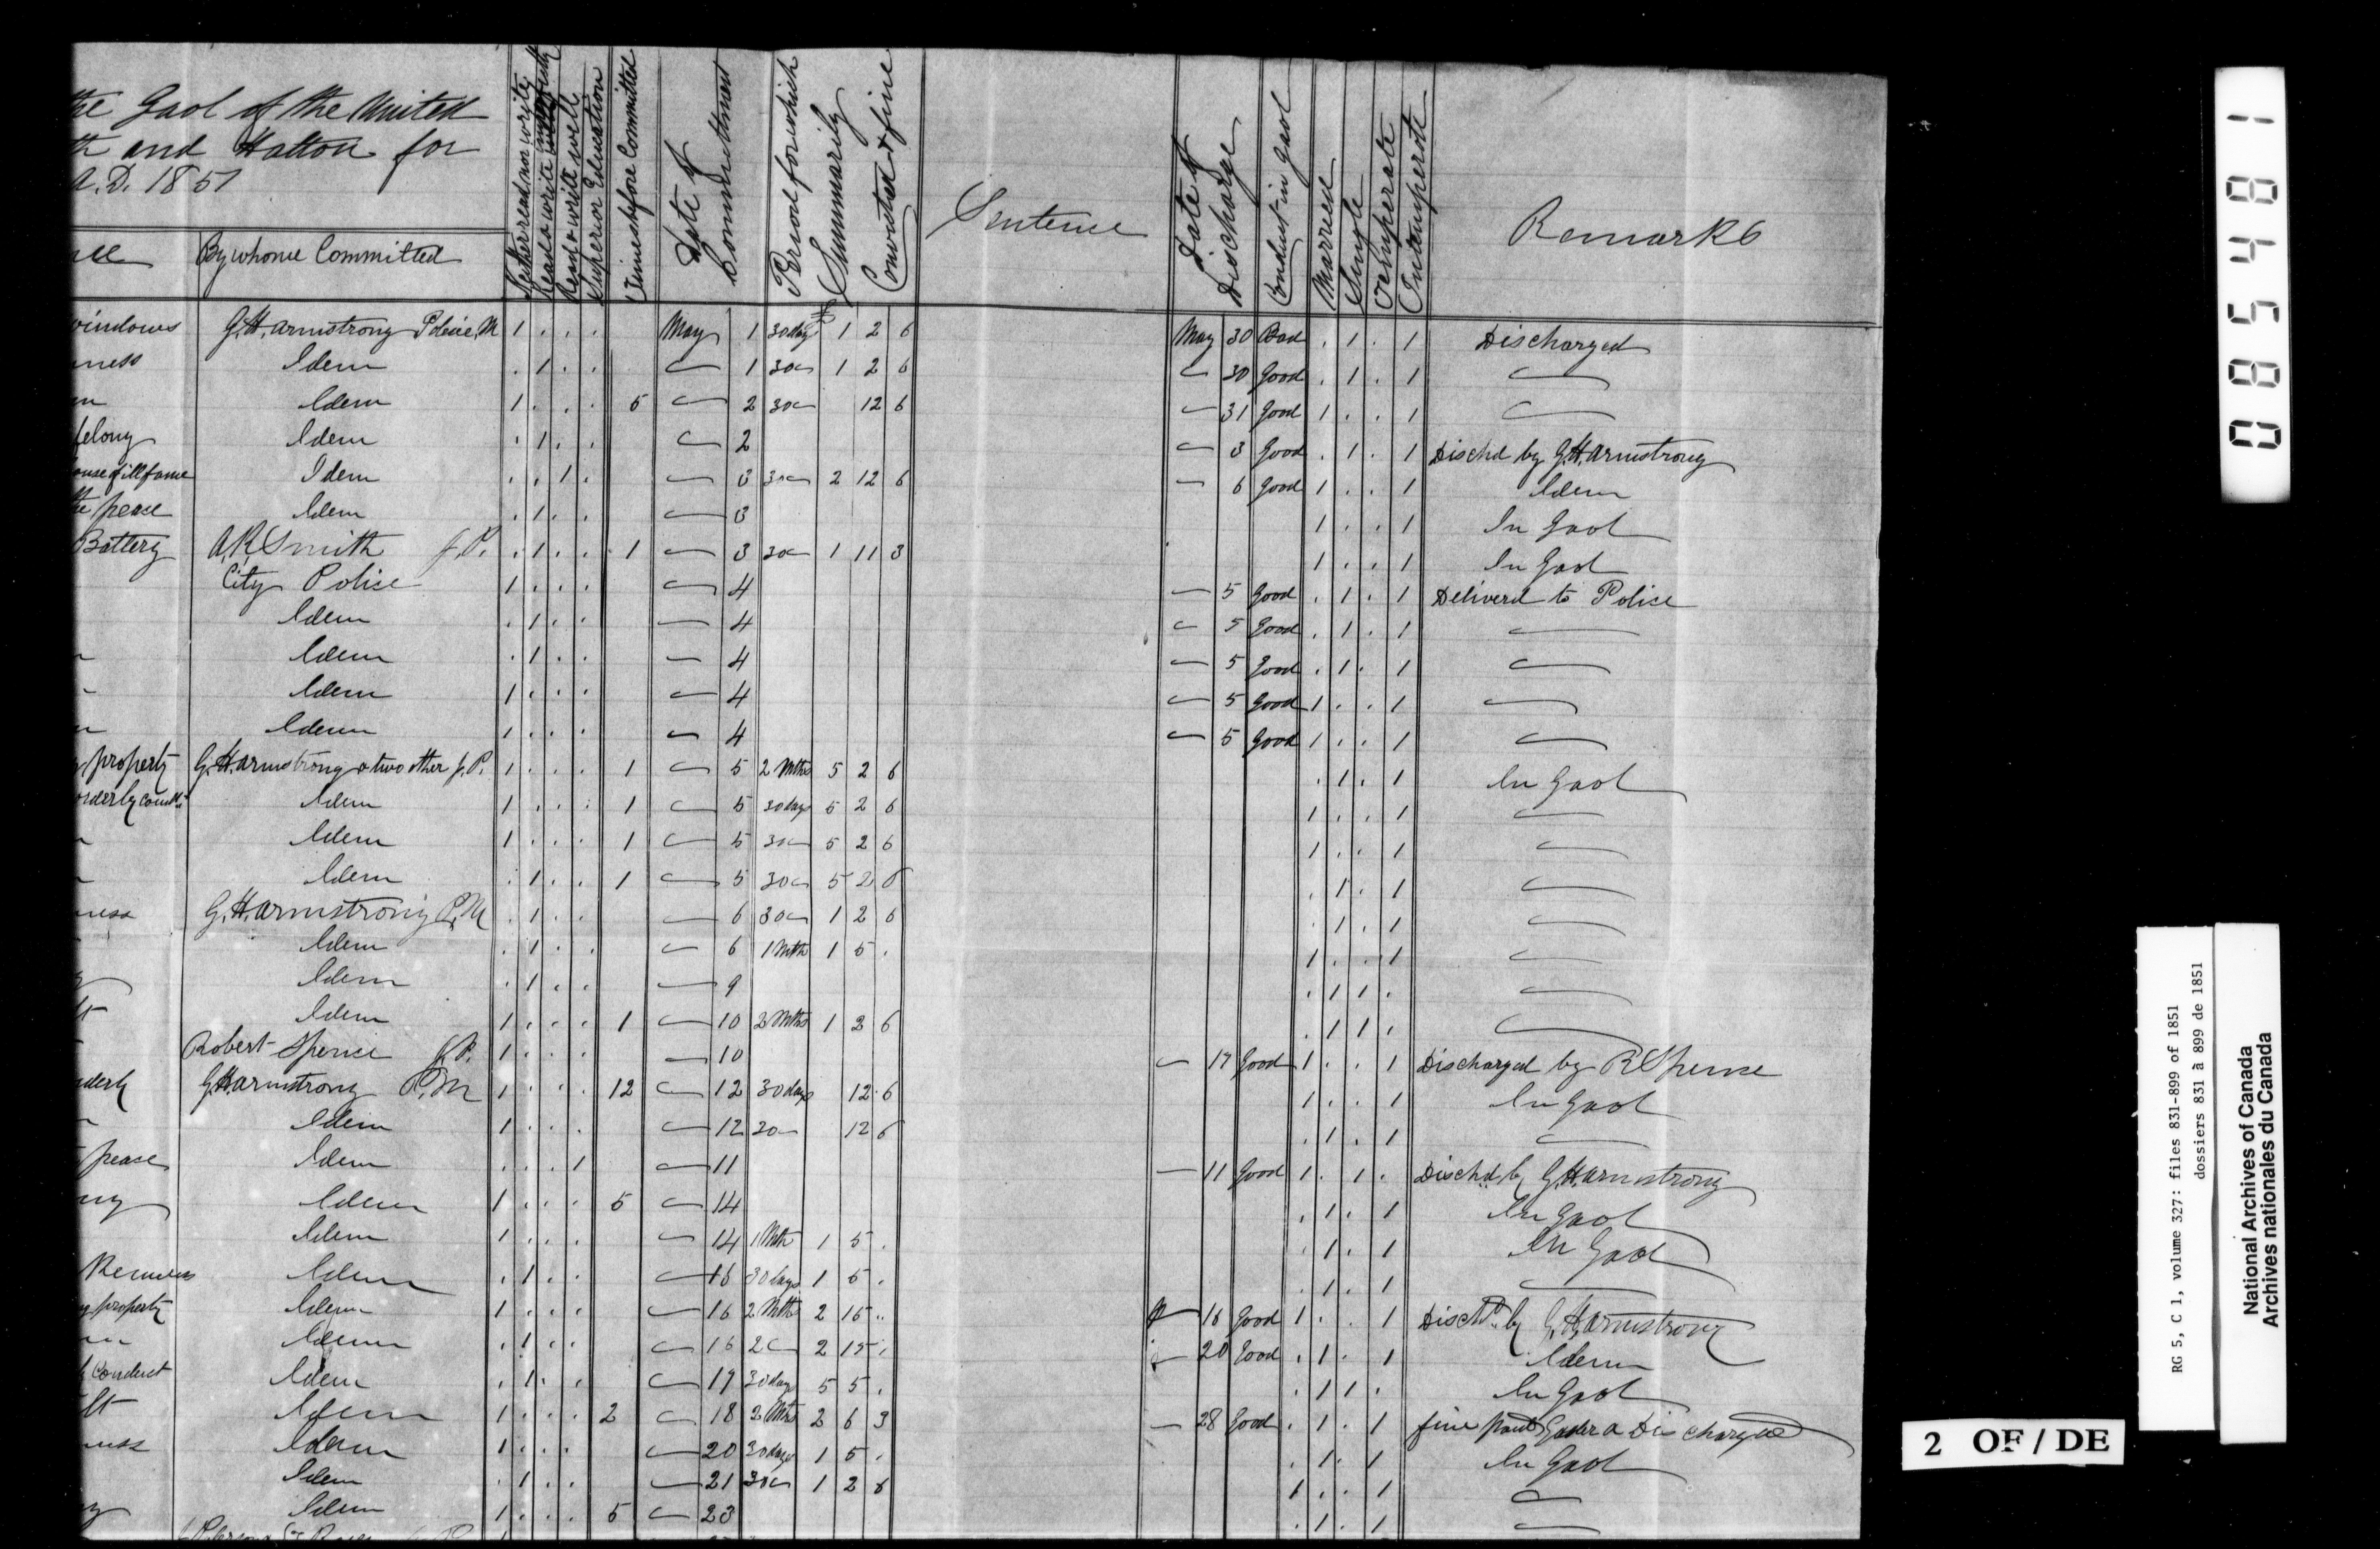 the Gaol of the United
th and Halton for
A.D. 1851
By whome Committed
Neither read nor write
Read & write imperfectly
Read & write well
Superior Education
Times before Committed
Date of Commitment
Period for which
Summarily
Convicted & fine
Sentence
Date of Discharge
Conduct in Gaol
Married
Single
Temperate
Intemperate
Remarks
windows G.H. Armstrong Police M 1 . . . May 1 30 days 1 2 6 May 30 Bad . 1 . 1 Discharged
ness Idem . 1 . . — 1 30 — 1 2 6 — 30 Good . 1 . 1 —
Idem 1 . . . 5 — 2 30 — 12 6 — 31 Good 1 . . 1 —
felony Idem . 1 . . — 2 — 3 Good . 1 . 1 Dischd by G.H. Armstrong
ouse of ill fame Idem . . 1 . — 3 30 — 2 12 6 — 6 Good 1 . . 1 Idem
the peace Idem . 1 . . — 3 1 . . 1 In Gaol
Battery A.R. Smith J.P. . 1 . . 1 — 3 30 — 1 11 3 1 . . 1 In Gaol
City Police 1 . . . — 4 — 5 Good . 1 . 1 Deliverd to Police
Idem . 1 . . — 4 — 5 Good . 1 . 1 —
Idem . 1 . . — 4 — 5 Good . 1 . 1 —
Idem 1 . . . — 4 — 5 Good 1 . . 1 —
Idem 1 . . . — 4 — 5 Good 1 . . 1 —
property G.H. Armstrong & two other J.P. 1 . . . 1 — 5 2 Mths 5 2 6 . 1 . 1 In Gaol
orderly Idem 1 . . . 1 — 5 30 days 5 2 6 1 . . 1 —
Idem 1 . . . 1 — 5 30 — 5 2 6 1 . . 1 —
Idem . 1 . . 1 — 5 30 — 5 2 6 . 1 . 1 —
ness G.H. Armstrong P.M . 1 . . — 6 30 — 1 2 6 . 1 . 1 —
Idem . 1 . . — 6 1 Mth 1 5 . 1 . . 1 —
Idem . 1 . . — 9 . 1 1 . —
lt Idem 1 . . . 1 — 10 2 Mths 1 2 6 . 1 1 . —
Robert Spence J.P. 1 . . . — 10 — 17 Good 1 . . 1 Discharged by R Spence
derly G.H. Armstrong P.M 1 . . . 12 — 12 30 days 12 6 1 . . 1 In Gaol
Idem 1 . . . — 12 30 — 12 6 . 1 . 1 —
peace Idem . . . 1 — 11 — 11 Good 1 . 1 . Dischd by G.H. Armstrong
ny Idem 1 . . . 5 — 14 . 1 . 1 In Gaol
Idem 1 . . . — 14 1 Mth 1 5 . . 1 . 1 In Gaol
Idem . 1 . . — 16 30 days 1 5 . . 1 . 1 —
property Idem 1 . . . — 16 2 Mths 2 15 .. — 16 Good 1 . . 1 Dischd by G.H. Armstrong
Idem . 1 . . — 16 2 — 2 15 . — 20 Good . 1 . 1 Idem
conduct Idem . 1 . . — 17 30 days 5 5 . . 1 1 . In Gaol
lt Idem 1 . . . 2 — 18 2 Mths 2 6 3 — 28 Good . 1 . 1 fine paid Discharged
ness Idem 1 . . . — 20 30 days 1 5 . . 1 . 1 In Gaol
Idem . 1 . . — 21 30 — 1 2 6 1 . . 1 —
Idem 1 . . . 5 — 23 . 1 . 1 —
085481
RG 5, C 1, volume 327: files 831-899 of 1851
dossiers 831 à 899 de 1851
National Archives of Canada
Archives nationales du Canada
2 OF / DE